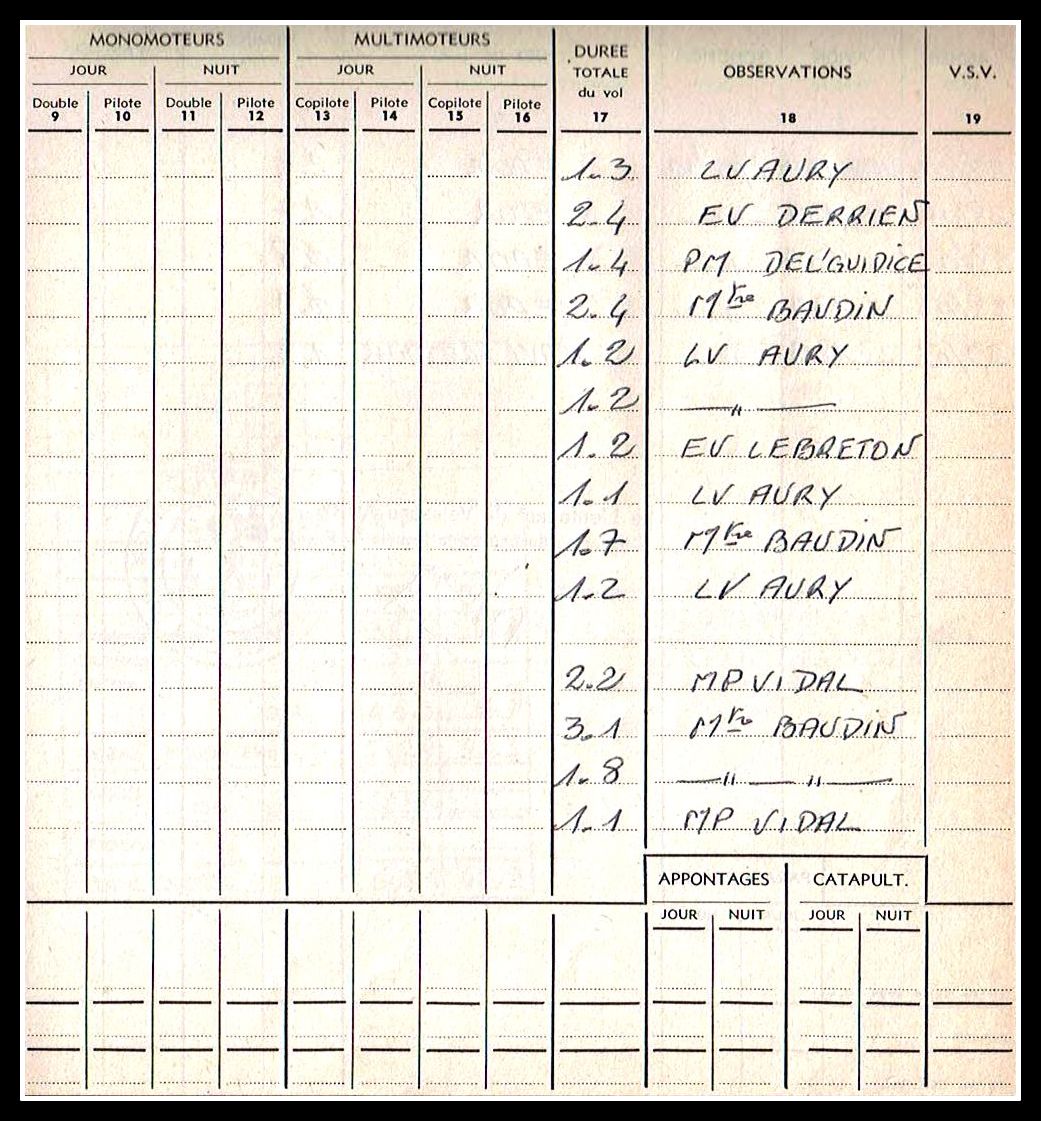 MONOMOTEURS MULTIMOTEURS DUREE TOTALE du vol OBSERVATIONS V.S.V.
JOUR NUIT JOUR NUIT
Double Pilote Double Pilote Copilote Pilote Copilote Pilote
9 10 11 12 13 14 15 16 17 18 19
1.3 LV AURY
2.4 EV DERRIEN
1.4 PM DEL'GUIDICE
2.4 Mtre BAUDIN
1.2 LV AURY
1.2 — " —
1.2 EV LEBRETON
1.1 LV AURY
1.7 Mtre BAUDIN
1.2 LV AURY
2.2 MP VIDAL
3.1 Mtre BAUDIN
1.8 — " — " —
1.1 MP VIDAL
APPONTAGES CATAPULT.
JOUR NUIT JOUR NUIT